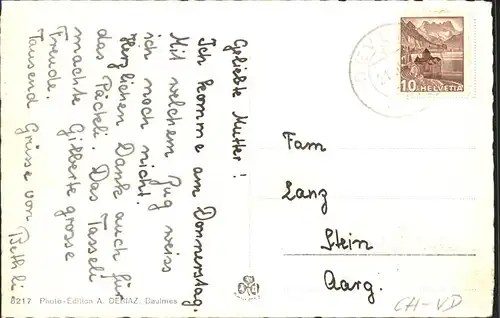 Geliebte Mutter!
Ich komme am Donnerstag.
Mit welchem Zug weiss
ich noch nicht.
Herzlichen Dank auch für
das Päckli. Das Tasseli
machte Gilberte grosse
Freude.
Tausend Grüsse von Bethli
Fam
Lanz
Stein
Aarg.
10 HELVETIA
8217 Photo-Edition A. DERIAZ, Baulmes
CH-VD